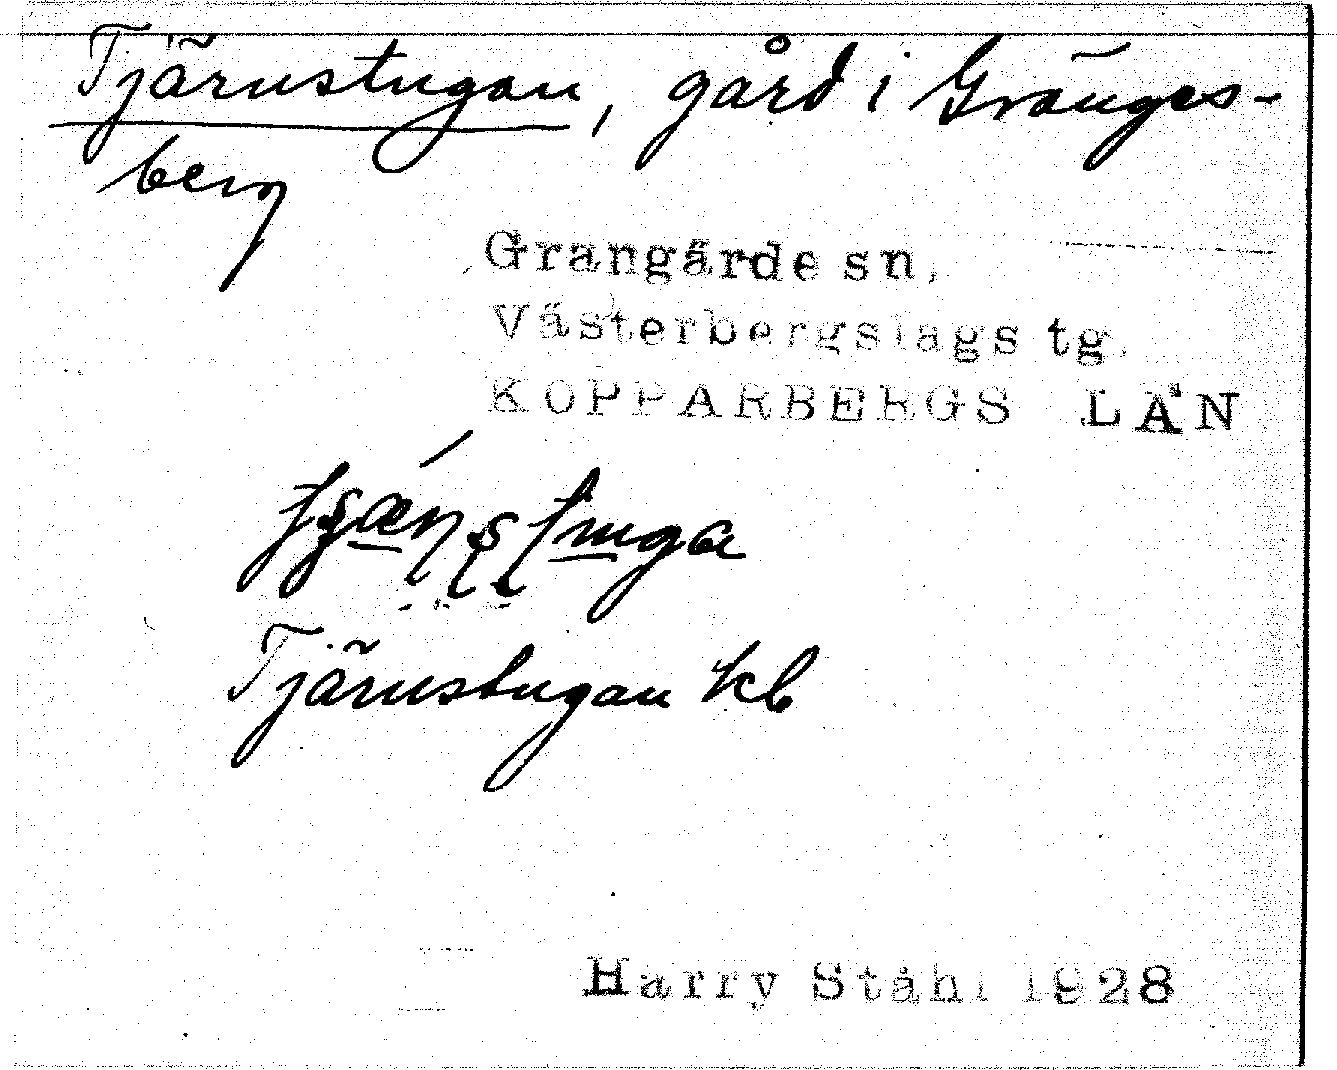 Tjärnstugan, gård i Gränges-
berg
Grangärde sn,
Västerbergslags tg.
KOPPARBERGS LÄN
Tjärnstugan kb
Harry Ståhl 1928